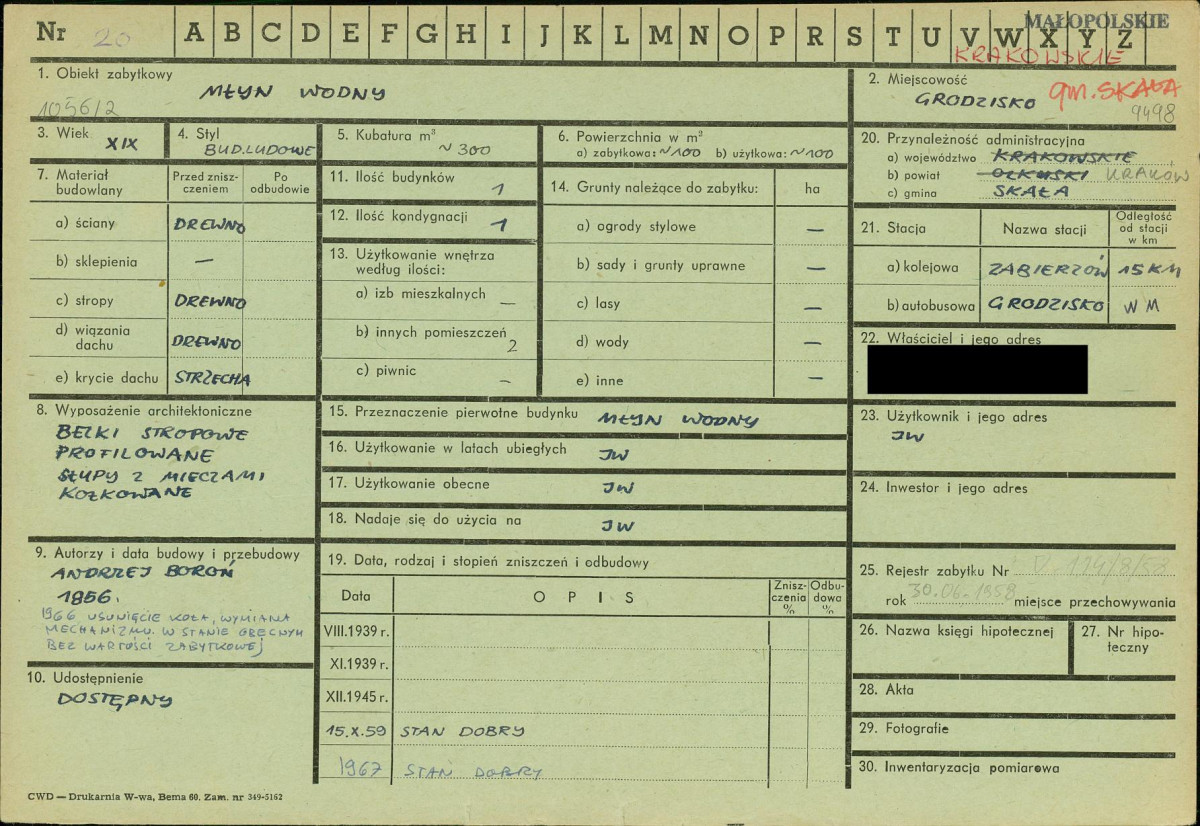 Nr 20 A B C D E F G H I J K L M N O P R S T U V W X Y Z
MAŁOPOLSKIE
KRAKOWSKIE
1. Obiekt zabytkowy
MŁYN WODNY
1056/2
2. Miejscowość
GRODZISKO gm. SKAŁA
9498
3. Wiek XIX
4. Styl
BUD. LUDOWE
5. Kubatura m³
~ 300
6. Powierzchnia w m²
a) zabytkowa: ~100 b) użytkowa: ~100
7. Materiał budowlany
Przed zniszczeniem
Po odbudowie
a) ściany DREWNO
b) sklepienia —
c) stropy DREWNO
d) wiązania dachu DREWNO
e) krycie dachu STRZECHA
8. Wyposażenie architektoniczne
BELKI STROPOWE
PROFILOWANE
SŁUPY Z MIECZAMI
KOŁKOWANE
9. Autorzy i data budowy i przebudowy
ANDRZEJ BOROŃ
1856.
1966 USUNIĘCIE KOŁA, WYMIANA
MECHANIZMU. W STANIE OBECNYM
BEZ WARTOŚCI ZABYTKOWEJ
10. Udostępnienie
DOSTĘPNY
11. Ilość budynków 1
12. Ilość kondygnacji 1
13. Użytkowanie wnętrza
według ilości:
a) izb mieszkalnych —
b) innych pomieszczeń 2
c) piwnic —
14. Grunty należące do zabytku: ha
a) ogrody stylowe —
b) sady i grunty uprawne —
c) lasy —
d) wody —
e) inne —
15. Przeznaczenie pierwotne budynku MŁYN WODNY
16. Użytkowanie w latach ubiegłych JW
17. Użytkowanie obecne JW
18. Nadaje się do użycia na JW
19. Data, rodzaj i stopień zniszczeń i odbudowy
Data OPIS Zniszczenia % Odbudowa %
VIII.1939 r.
XI.1939 r.
XII.1945 r.
15.X.59 STAN DOBRY
1967 STAN DOBRY
20. Przynależność administracyjna
a) województwo KRAKOWSKIE
b) powiat OLKUSKI KRAKÓW
c) gmina SKAŁA
21. Stacja Nazwa stacji Odległość od stacji w km
a) kolejowa ZABIERZÓW 15 KM
b) autobusowa GRODZISKO W M
22. Właściciel i jego adres
23. Użytkownik i jego adres
JW
24. Inwestor i jego adres
25. Rejestr zabytku Nr
rok 30.06.1958 miejsce przechowywania
26. Nazwa księgi hipotecznej
27. Nr hipoteczny
28. Akta
29. Fotografie
30. Inwentaryzacja pomiarowa
CWD — Drukarnia W-wa, Bema 60. Zam. nr 349-5162